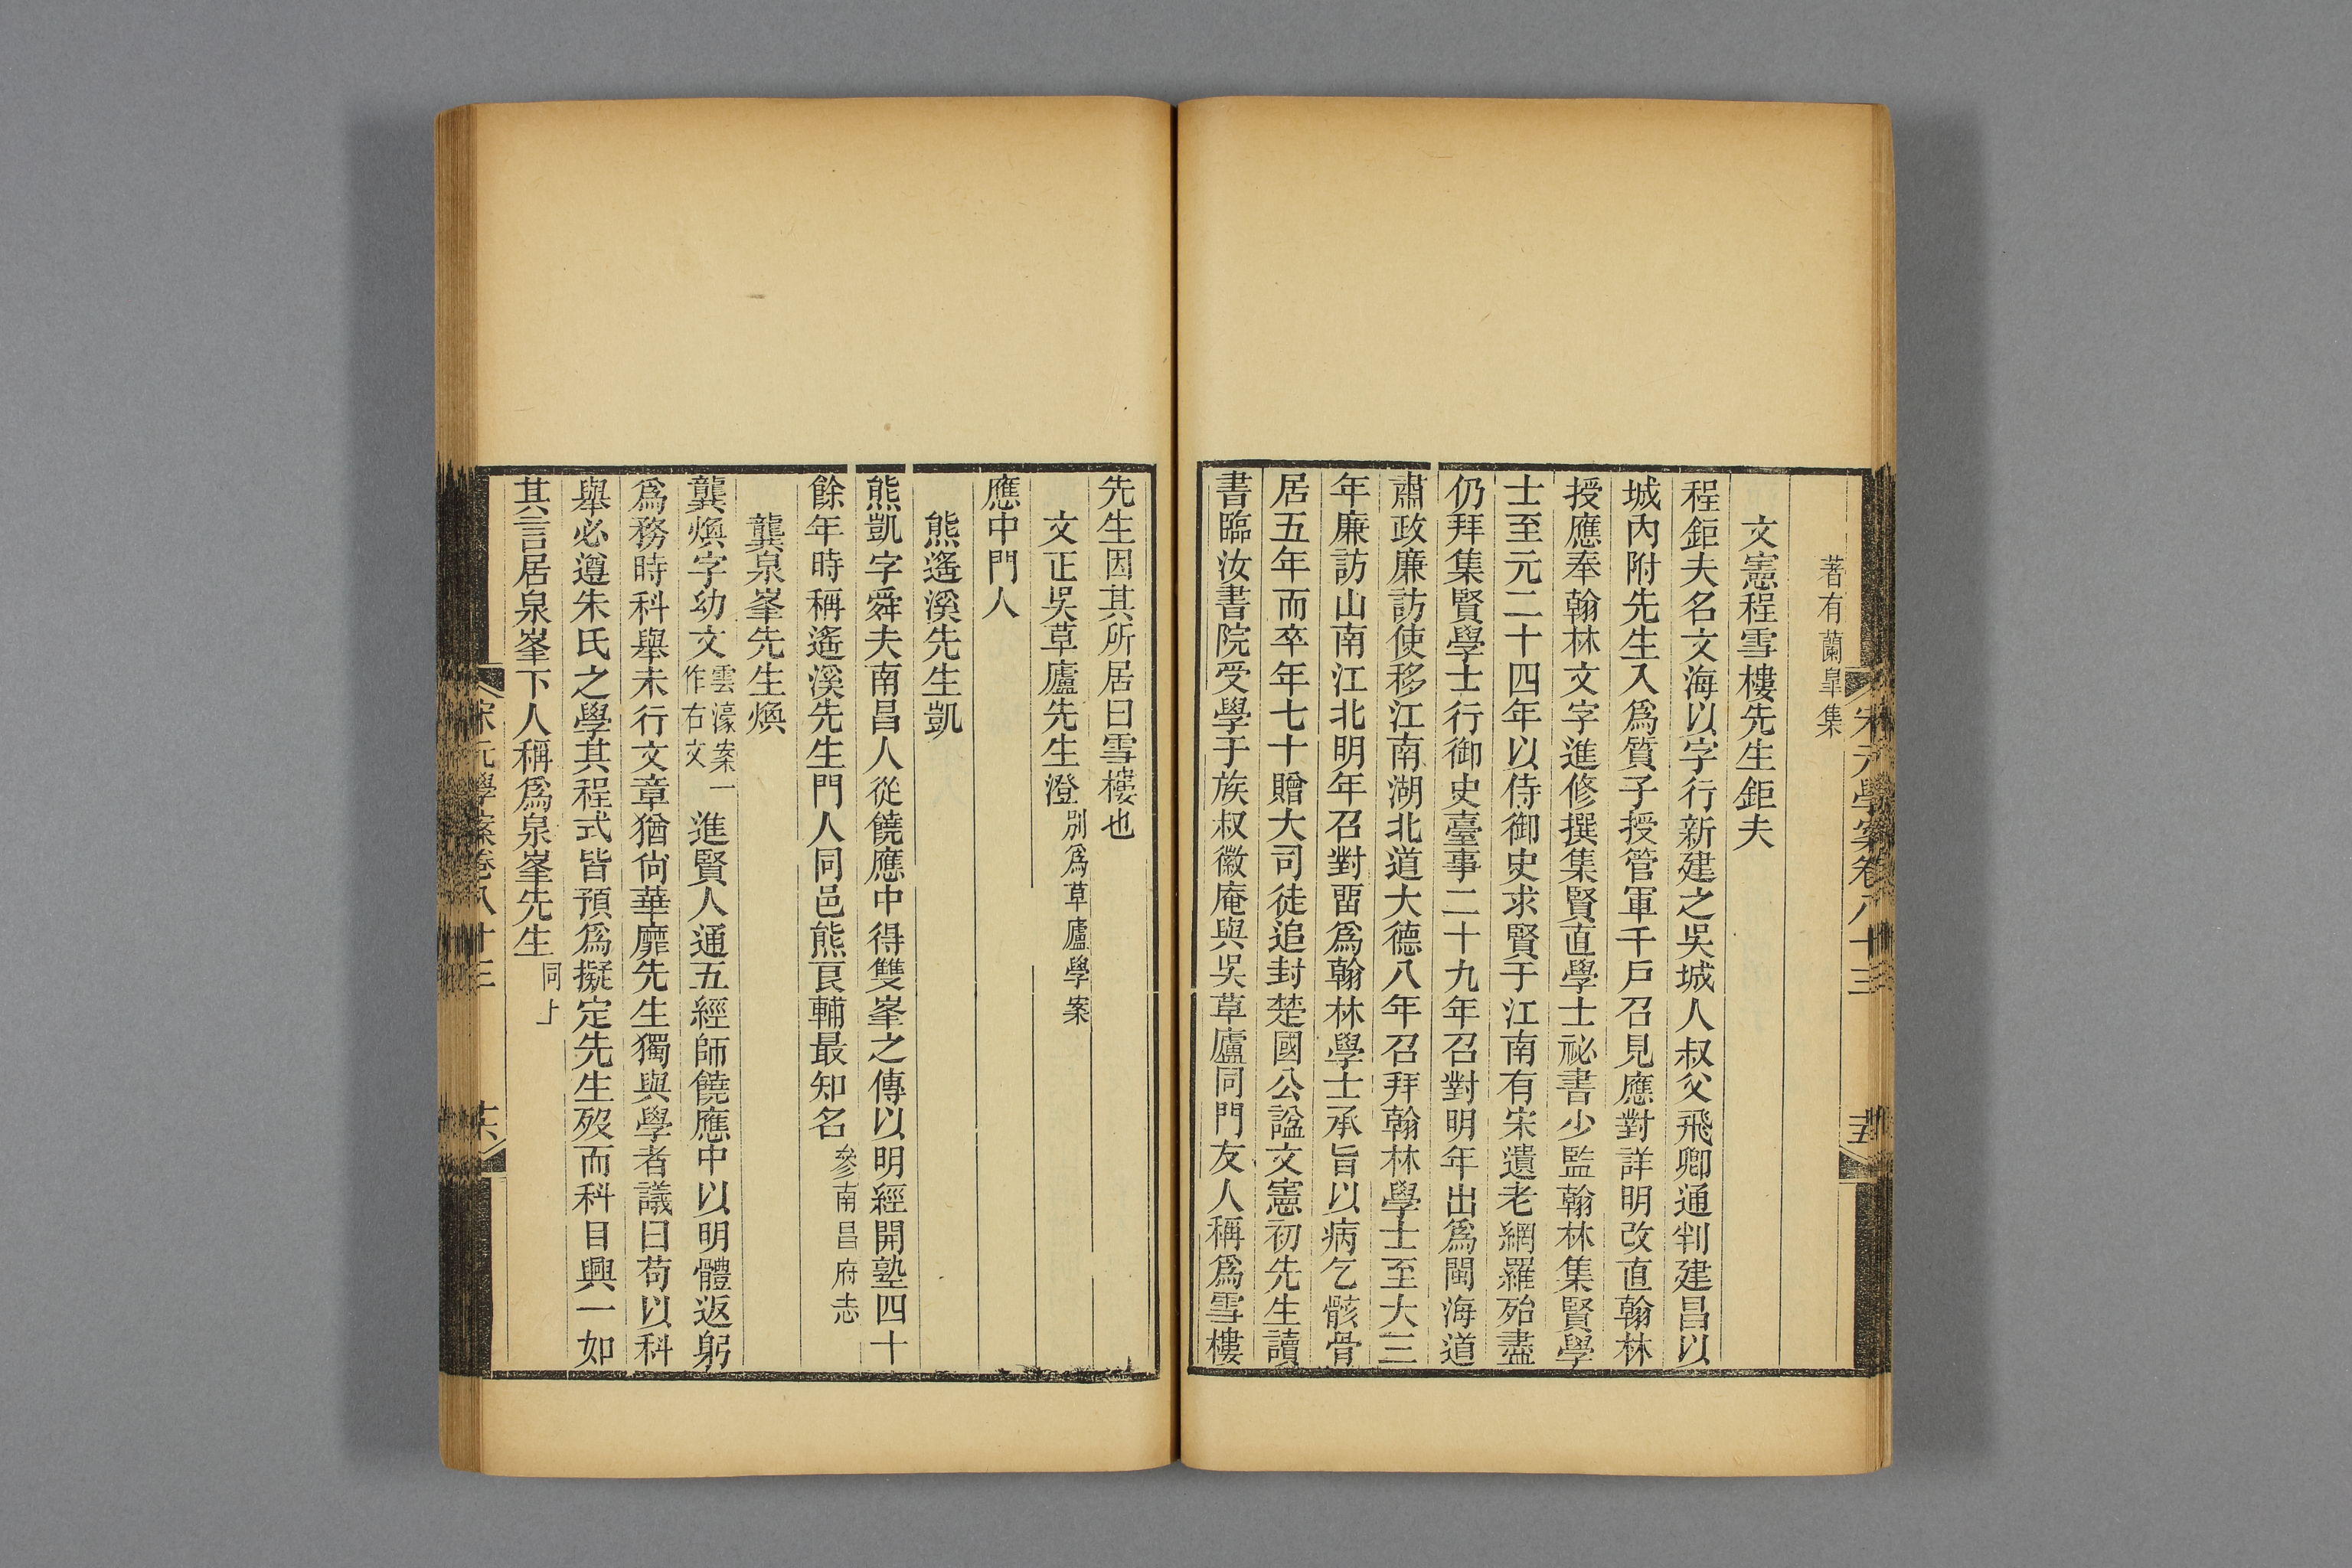 宋元學案卷八十三
五
著有蘭皐集
文憲程雪樓先生鉅夫
程鉅夫名文海以字行新建之吳城人叔父飛卿通判建昌以
城內附先生入爲質子授管軍千戶召見應對詳明改直翰林
授應奉翰林文字進修撰集賢直學士祕書少監翰林集賢學
士至元二十四年以侍御史求賢于江南有宋遺老網羅殆盡
仍拜集賢學士行御史臺事二十九年召對明年出爲閩海道
肅政廉訪使移江南湖北道大德八年召拜翰林學士至大三
年廉訪山南江北明年召對畱爲翰林學士承旨以病乞骸骨
居五年而卒年七十贈大司徒追封楚國公諡文憲初先生讀
書臨汝書院受學于族叔徽庵與吳草廬同門友人稱爲雪樓
先生因其所居曰雪樓也
文正吳草廬先生澄別爲草廬學案
應中門人
熊遙溪先生凱
熊凱字舜夫南昌人從饒應中得雙峯之傳以明經開塾四十
餘年時稱遙溪先生門人同邑熊良輔最知名參南昌府志
龔泉峯先生煥
龔煥字幼文雲濠案一作右文進賢人通五經師饒應中以明體返躬
爲務時科舉未行文章猶尙華靡先生獨與學者議曰苟以科
舉必遵朱氏之學其程式皆預爲擬定先生歿而科目興一如
其言居泉峯下人稱爲泉峯先生同上
宋元學案卷八十三